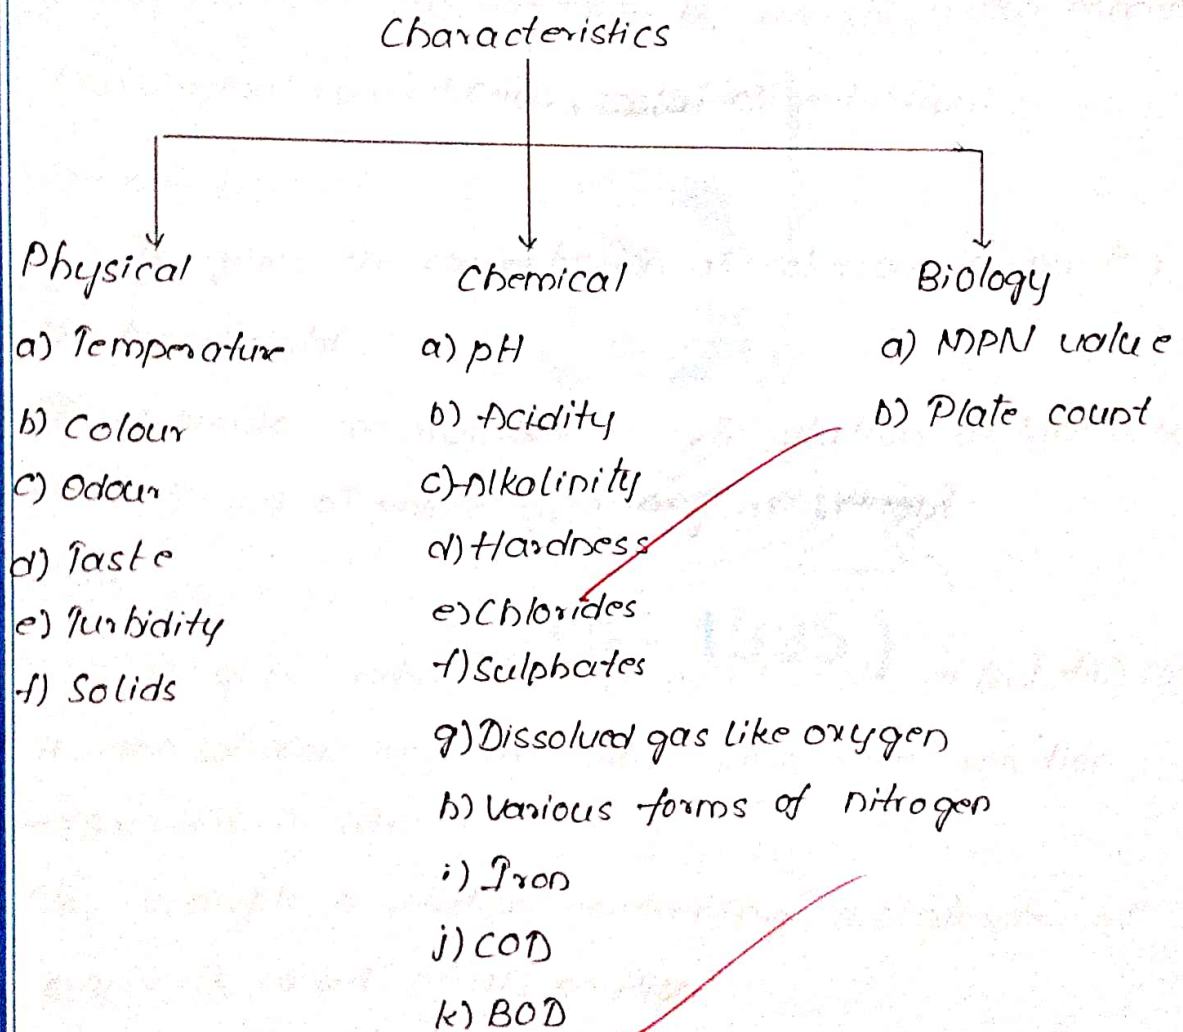 Characteristics
Physical
a) Temperature
b) Colour
c) Odour
d) Taste
e) Turbidity
f) Solids
Chemical
a) pH
b) Acidity
c) Alkalinity
d) Hardness
e) Chlorides
f) Sulphates
g) Dissolved gas like oxygen
h) Various forms of nitrogen
i) Iron
j) COD
k) BOD
Biology
a) MPN value
b) Plate count